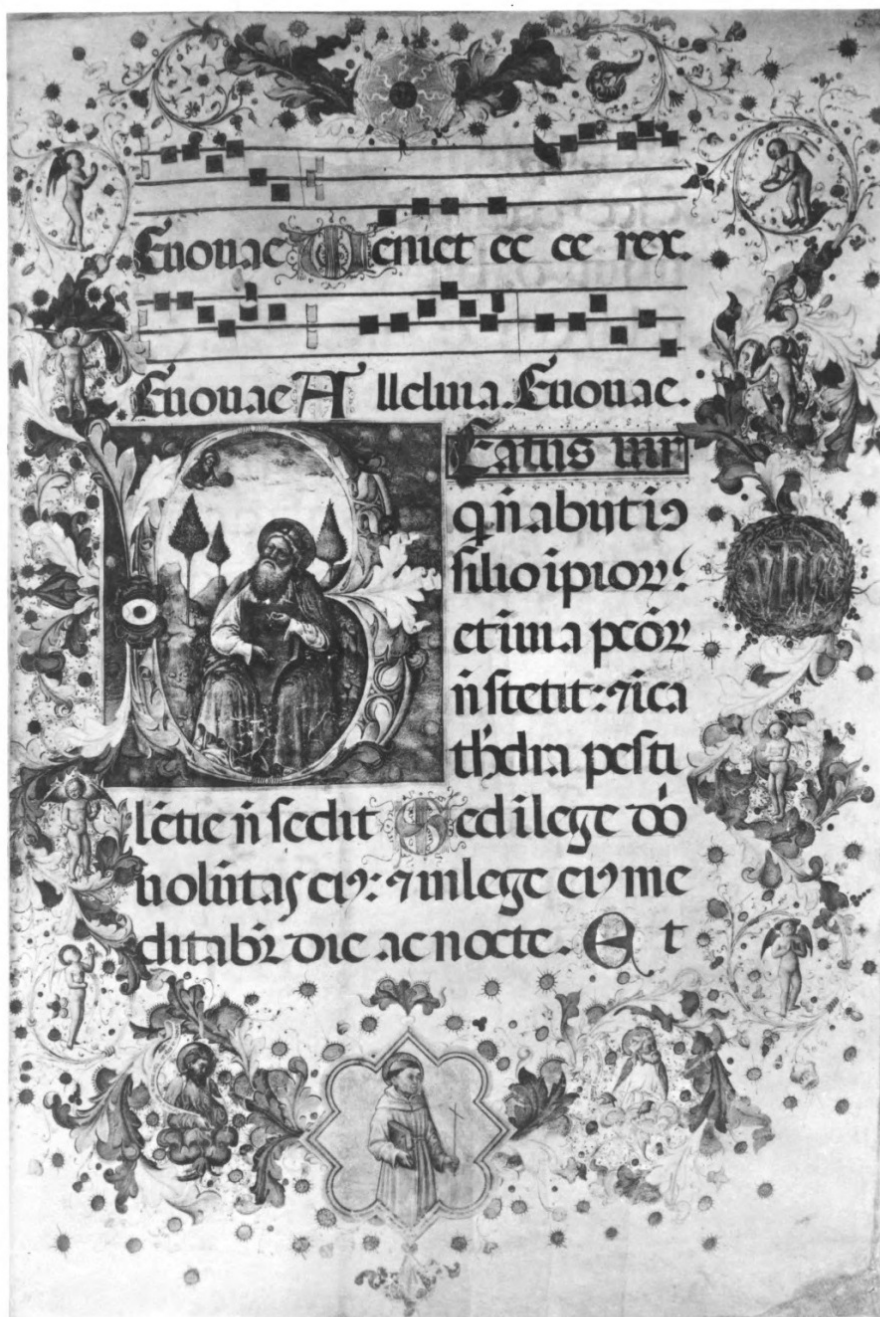 Euouae Veniet ec ce rex.
Euouae A lleluia. Euouae.
Beatus uir
qͥ n̄ abijt i ꝯ
silio ipioꝝ:
et i uia pc̄oꝝ
n̄ stetit: ⁊ i ca
thedra pesti
lētie n̄ sedit Sed i lege dō
uolūtas eiꝰ: ⁊ in lege eiꝰ me
ditabr̄ die ac nocte. Et
yhs